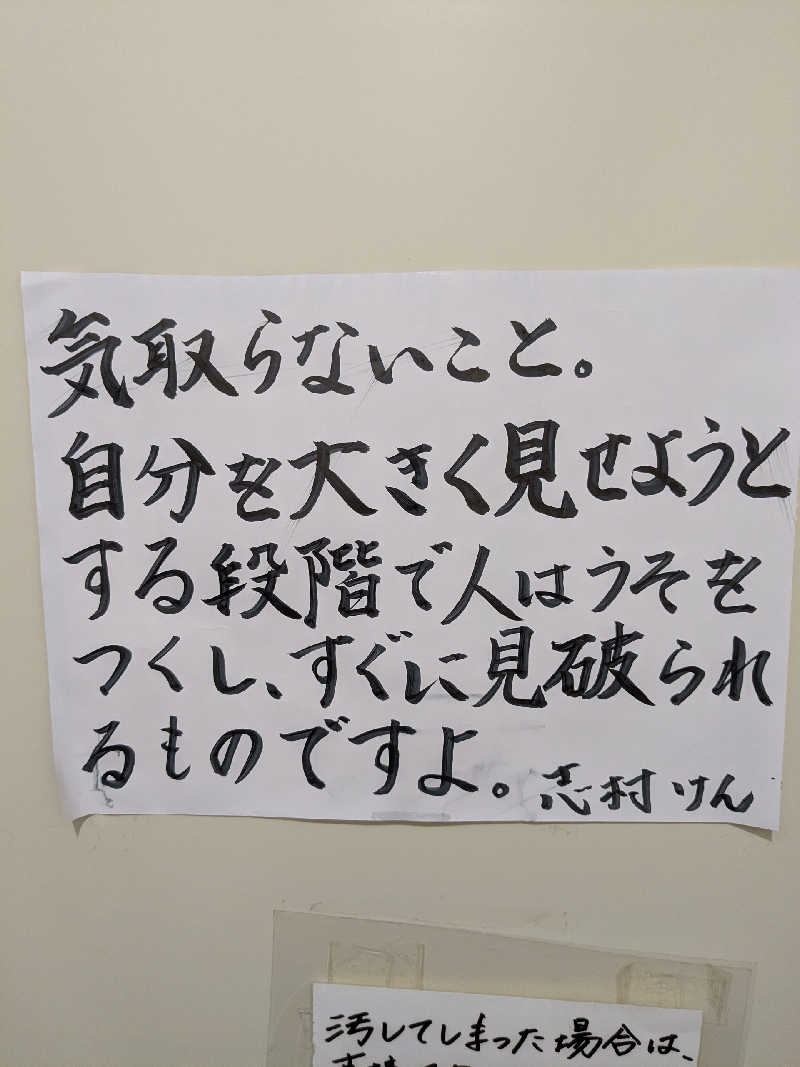 気取らないこと。
自分を大きく見せようと
する段階で人はうそを
つくし、すぐに見破られ
るものですよ。志村けん
汚してしまった場合は、